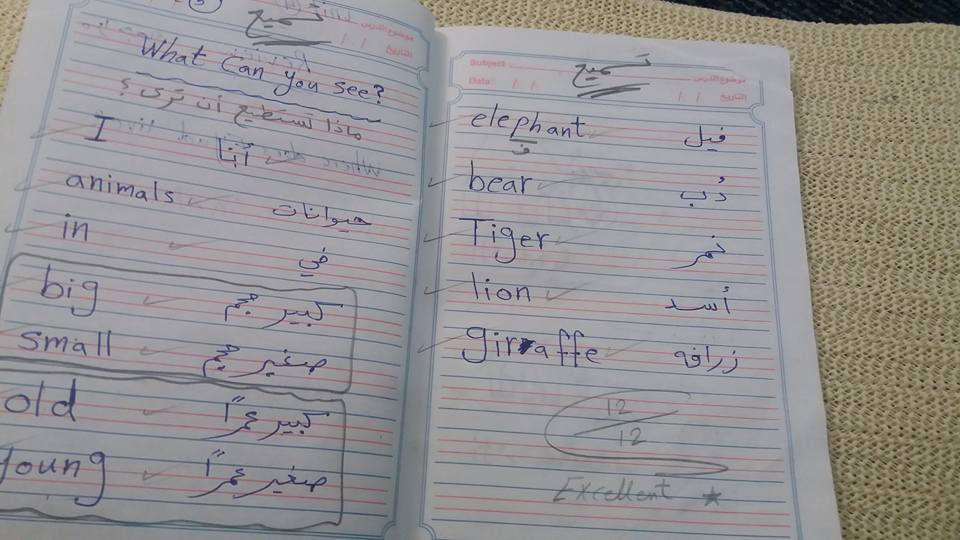 تسميع
What can you see?
ماذا تستطيع أن ترى؟
I أنا
animals حيوانات
in في
big كبير حجم
small صغير حجم
old كبير عمرًا
young صغير عمرًا
Subject: تسميع موضوع الدرس
Date: / / / / التاريخ
elephant فيل
ف
bear دُب
Tiger نمر
lion أسد
giraffe زرافه
12
12
Excellent